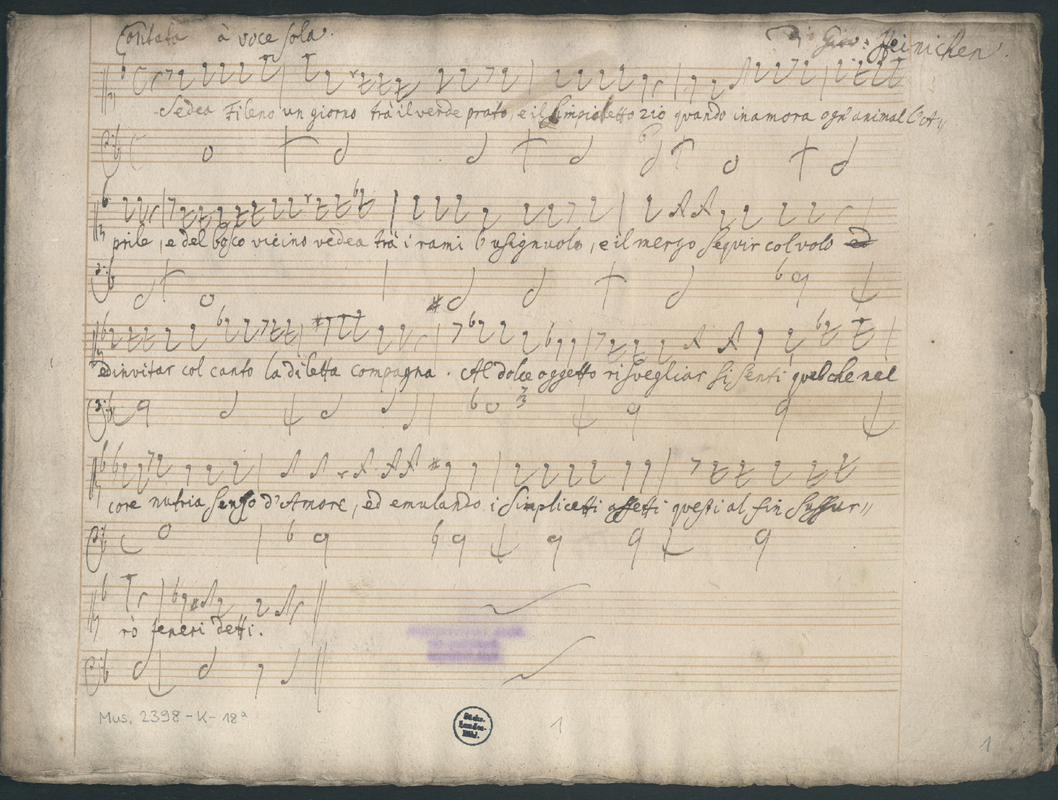 Cantata à voce sola.
Di Gio: Heinichen.
Sedea Fileno un giorno trà il verde prato, e il simpioletto zio quando inamora ogn' animal l'A,,
prile, e del bosco vicino vedea trà i rami l'usignuolo, e il merlo seguir col volo ed
ed invitar col canto la diletta compagna. Al dolce oggetto risvegliar si senti quel che nel
core nutria senso d'Amore, ed emulando i simplicetti affetti questi al fin sussur,,
rò teneri detti.
Mus. 2398-K-18a
Sächs.
Landes-
Bibl.
1
1